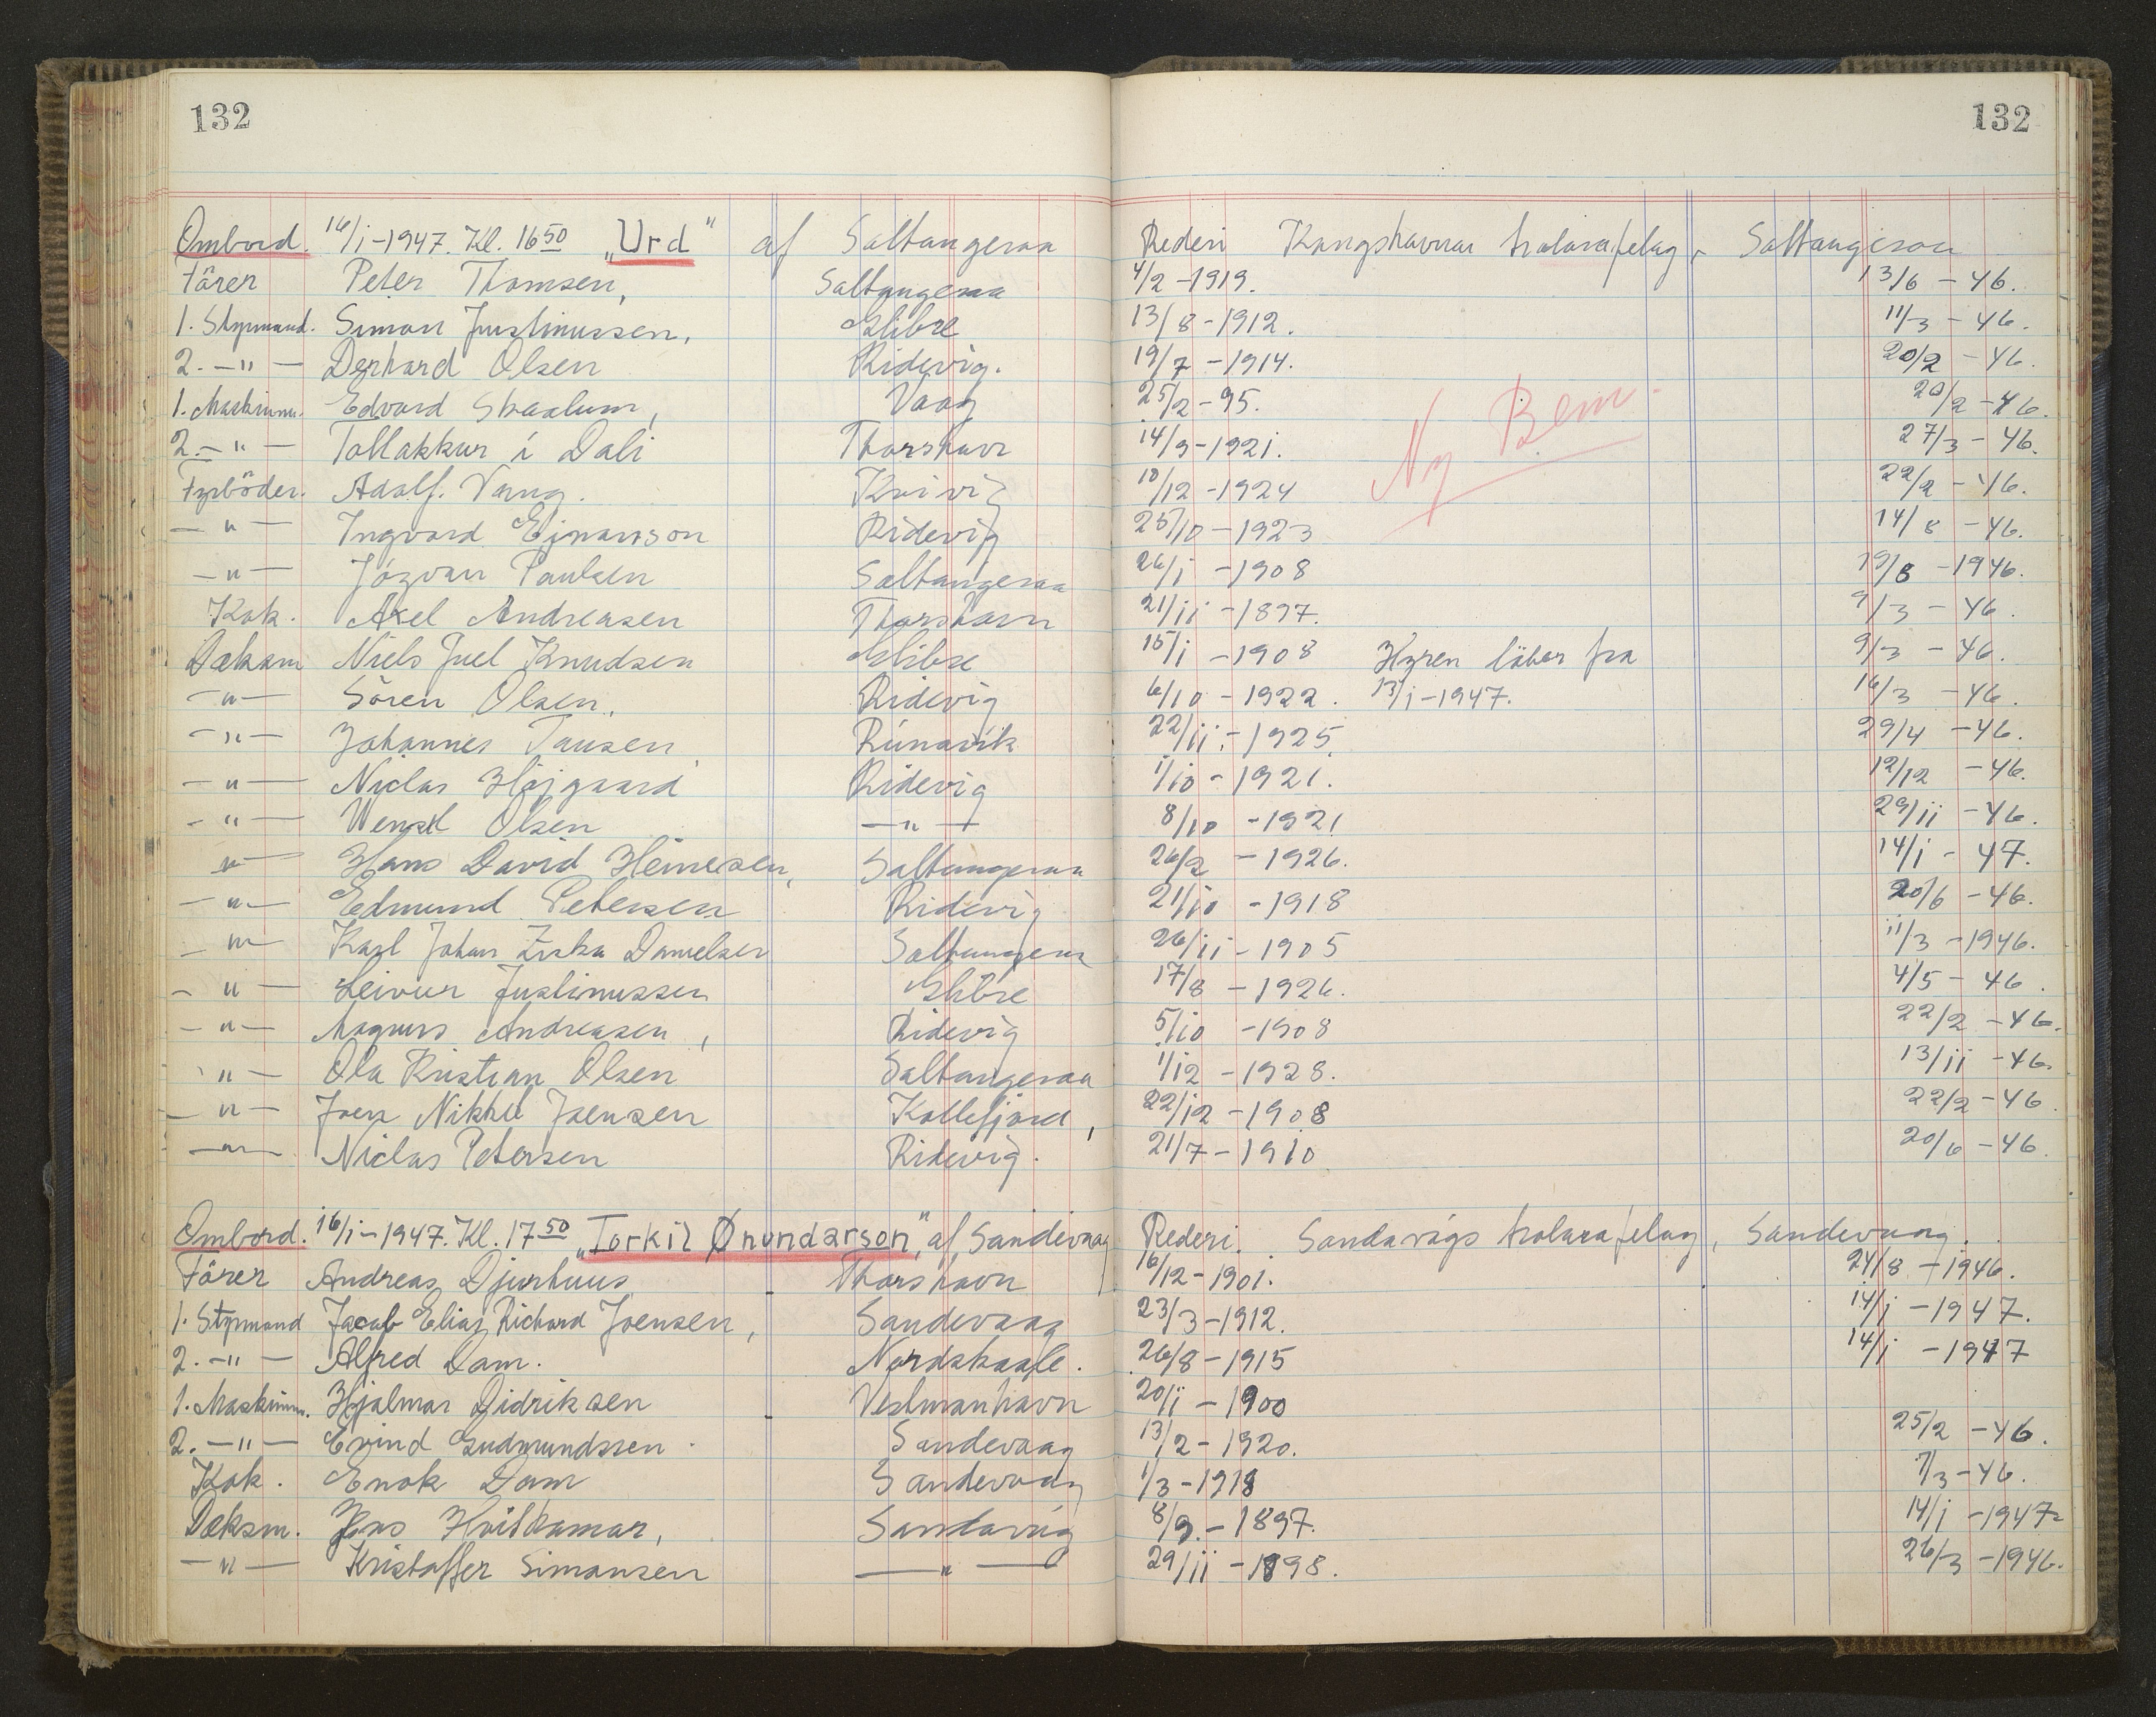 132 132
Ombord. 16/i-1947. Kl. 16 50 „Urd" af Saltangeraa Rederi Kongshavnar trolarafelag, Saltangeraa
Förer Peter Thomsen, Saltangeraa 4/2-1919. 13/6 - 46.
1. Styrmand. Simon Justinussen, Glibre 13/8-1912. 11/3 - 46.
2. -"- Derhard Olsen Ridevig. 19/7-1914. 20/2 - 46.
1. Maskinm. Edvard Skaalum, Vaag 25/2-95. 20/2 - 46.
2. -"- Tollakkur í Dali Thorshavn 14/9-1921. 27/3 - 46.
Ny Bem.
Fyrböder. Adolf. Vang. Kvivig 10/12-1924 22/2 - 46.
-"- Ingvard Ejnarsson Ridevig 25/10-1923 14/8 - 46.
-"- Józvan Paulsen Saltangeraa 26/i-1908 19/8 - 1946.
Kok. Axel Andreasen Thorshavn 21/ii-1897. 9/3 - 46.
Dæksm Niels Juel Knudsen Glibre 15/i-1908 Hyren löber fra 9/3 - 46.
-"- Sören Olsen, Ridevig 6/10-1922. 13/i-1947. 16/3 - 46.
-"- Johannes Tausen, Rúnavík 22/ii-1925. 29/4 - 46.
-"- Niclas Höjgaard Ridevig 1/10-1921. 12/12 - 46.
-"- Wensil Olsen -"- 8/10-1921 29/ii - 46.
-"- Hans David Heinesen, Saltangeraa 26/2-1926. 14/i - 47.
-"- Edmund Petersen Ridevig 21/10-1918 20/6 - 46.
-"- Karl Johan Ziska Danielsen Saltangeraa 26/ii-1905 11/3 - 1946.
-"- Leivur Justinussen Glibre 17/8-1926. 4/5 - 46.
-"- Magnus Andreasen, Ridevig 5/10-1908 22/2 - 46.
-"- Ola Kristian Olsen Saltangeraa 1/12-1928. 13/ii - 46.
-"- Joen Nikkel Joensen Kollefjord, 22/12-1908 22/2 - 46.
-"- Niclas Petersen Ridevig. 21/7-1910 20/6 - 46.
Ombord. 16/i-1947. Kl. 17 50 „Torkil Ønundarson", af Sandevaag Rederi. Sandavágs trolarafelag, Sandevaag.
Förer Andreas Djurhuus Thorshavn 16/12-1901. 24/8 - 1946.
1. Styrmand Jacob Elias Richard Joensen, Sandevaag 23/3-1912. 14/i - 1947.
2. -"- Alfred Dam. Nordskaale. 26/8-1915 14/i - 1947
1. Maskinm. Hjalmar Didriksen Vestmanhavn 20/i-1900
2. -"- Eyvind Gudmundssen. Sandevaag 13/2-1920. 25/2 - 46.
Kok. Enok Dam Sandevaag 1/3-1918 7/3 - 46.
Dæksm. Jens Hvithamar, Sandavág 8/9.-1897. 14/i - 1947
-"- Kristoffer Simonsen -"- 29/ii-1898. 26/3 - 1946.